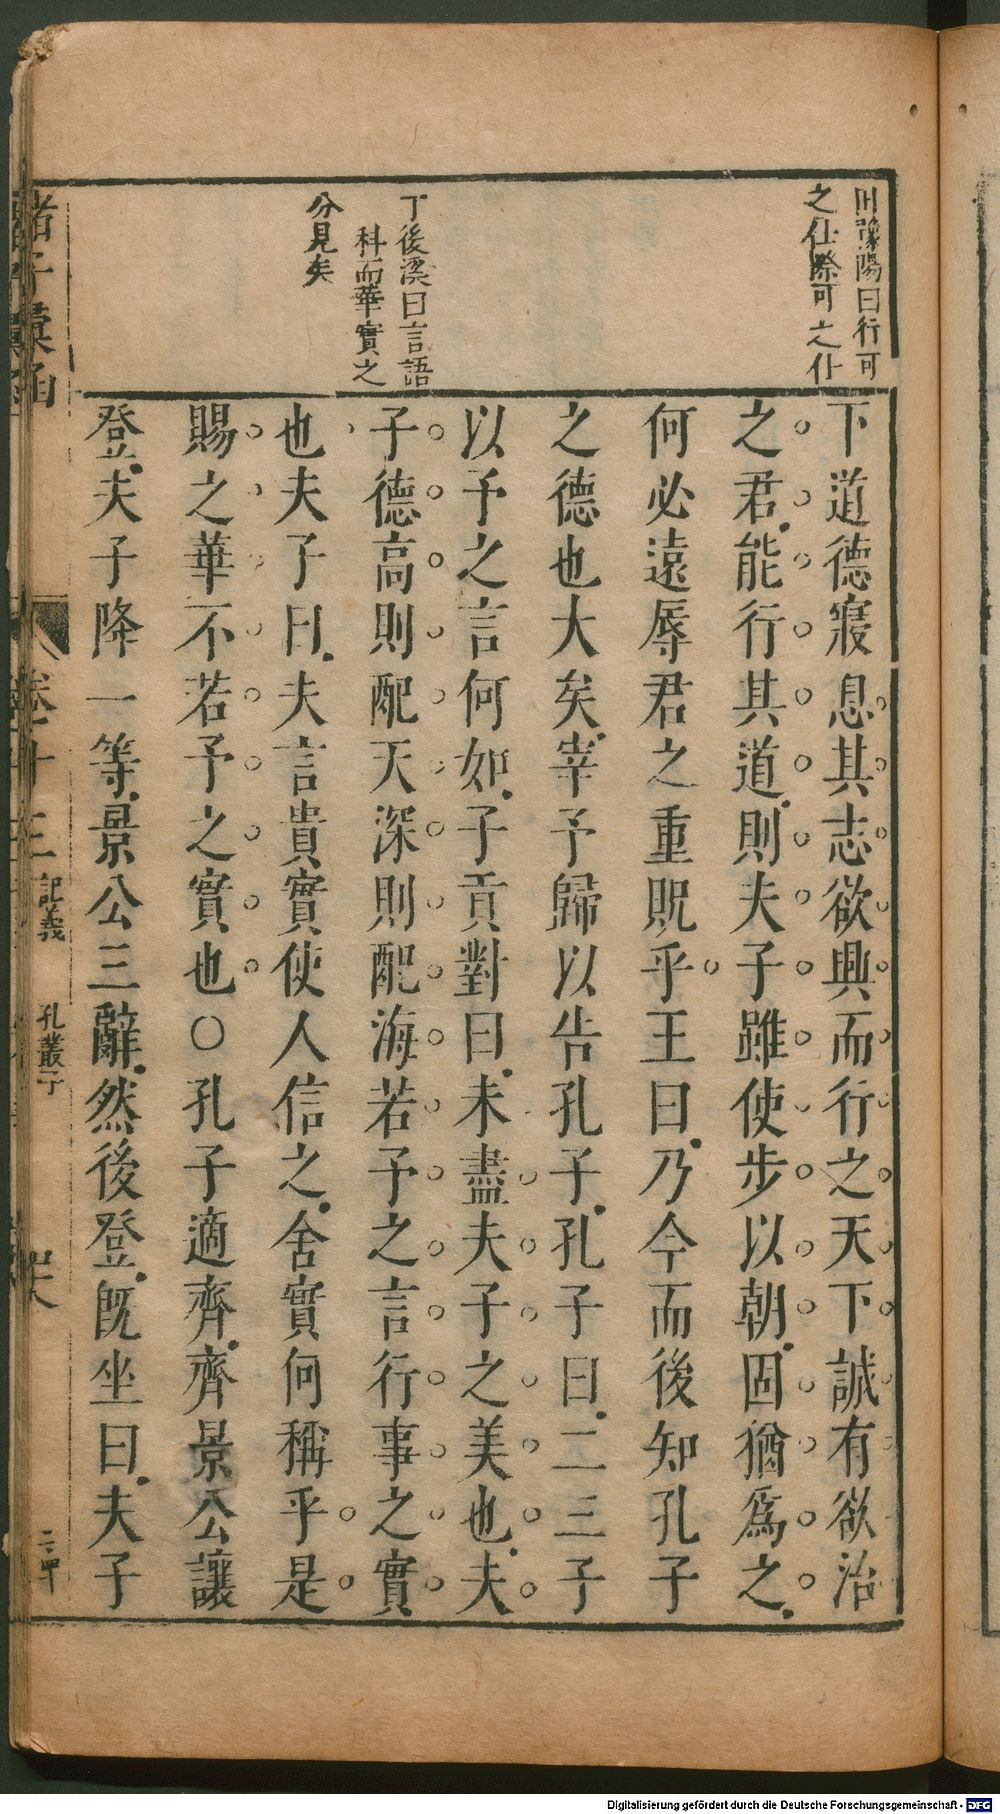 田豫陽曰行可
之仕際可之仕
丁後溪曰言語
科而華實之
分見矣
下道德寢息其志欲興而行之天下誠有欲治
之君能行其道則夫子雖使步以朝固猶爲之
何必遠辱君之重貺乎王曰乃今而後知孔子
之德也大矣宰予歸以告孔子孔子曰二三子
以予之言何如子貢對曰未盡夫子之美也夫
子德高則配天深則配海若予之言行事之實
也夫子曰夫言貴實使人信之舍實何稱乎是
賜之華不若予之實也○孔子適齊齊景公讓
登夫子降一等景公三辭然後登旣坐曰夫子
諸子彙函
卷十三 記義 孔叢子
Digitalisierung gefördert durch die Deutsche Forschungsgemeinschaft - DFG